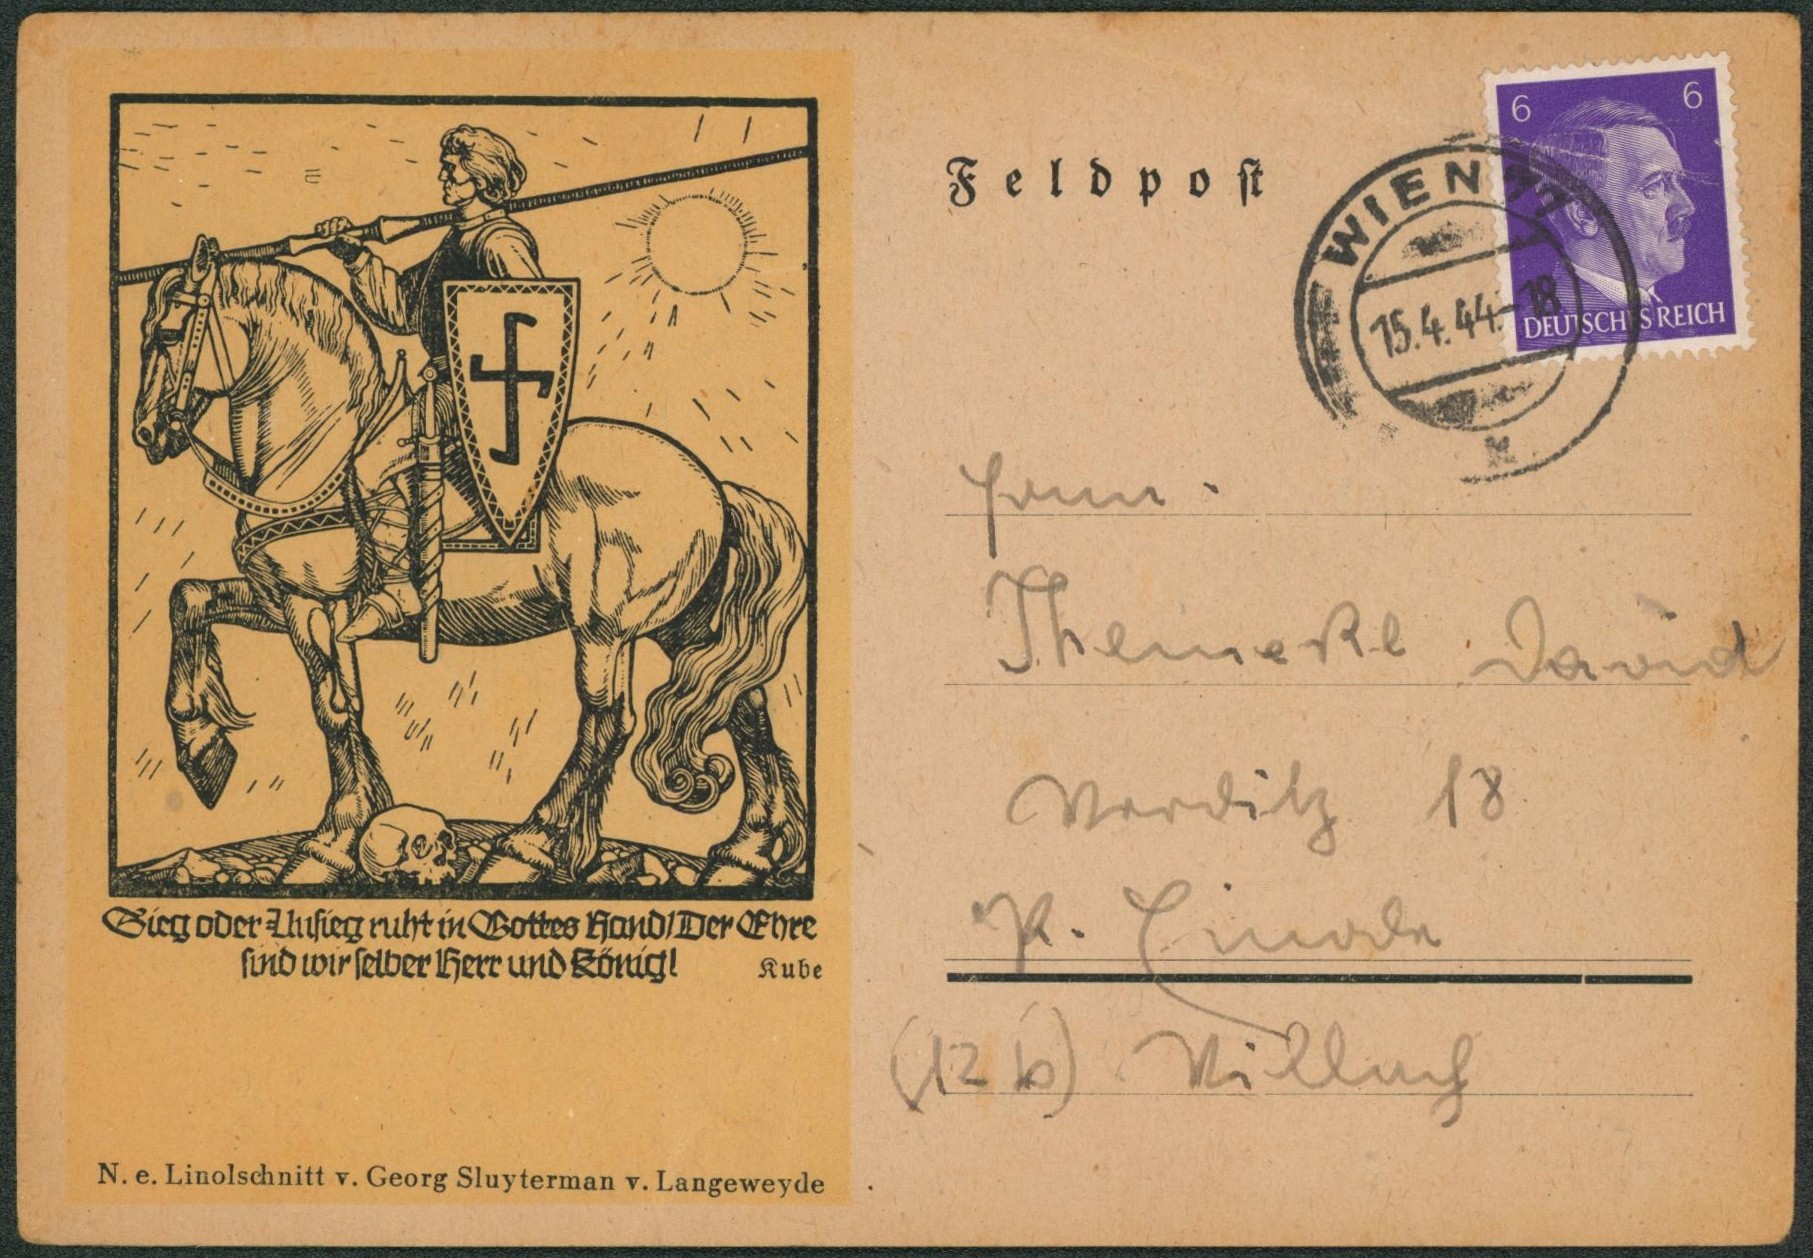 Sieg oder Unsieg ruht in Gottes Hand/ Der Ehre
sind wir selber Herr und König!
Kube
N. e. Linolschnitt v. Georg Sluyterman v. Langeweyde
Feldpost
6 6
DEUTSCHES REICH
WIEN
15.4.44-18
Herrn
David
Verditz 18
P. Einöde
(12 b) Villach